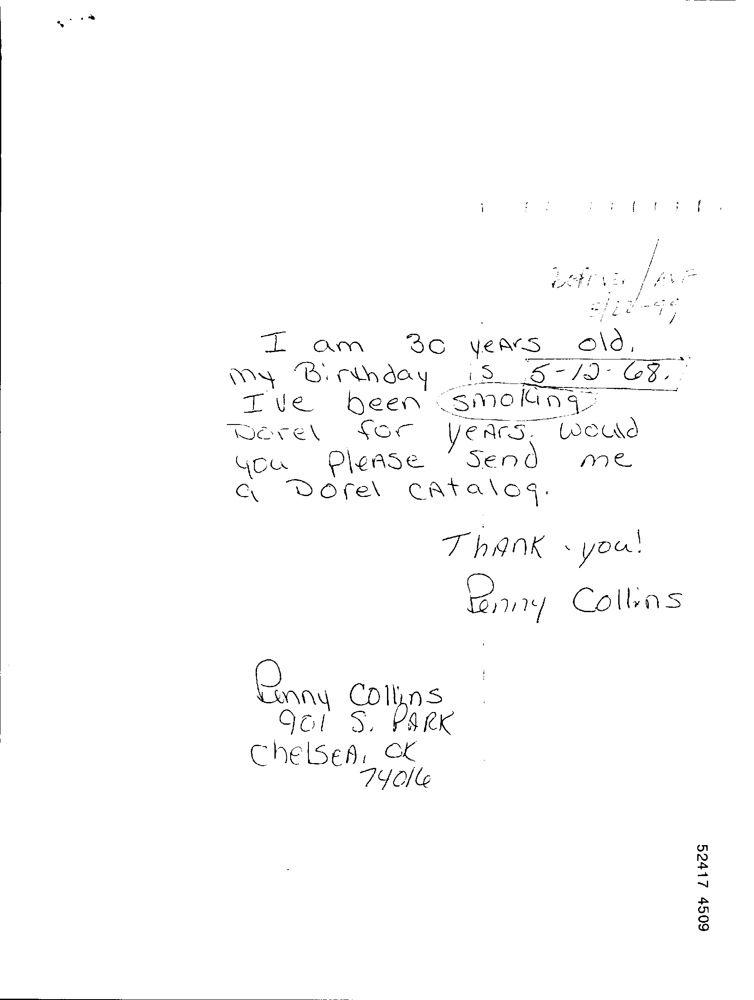 I am 30 years old.
my Birthday is 5-12-68.
I've been smoking
Dorel for years. Would
you please send me
a Dorel catalog.
Thank-you!
Penny Collins
Penny Collins
901 S. PARK
Chelsea, OK
74016
52417 4509